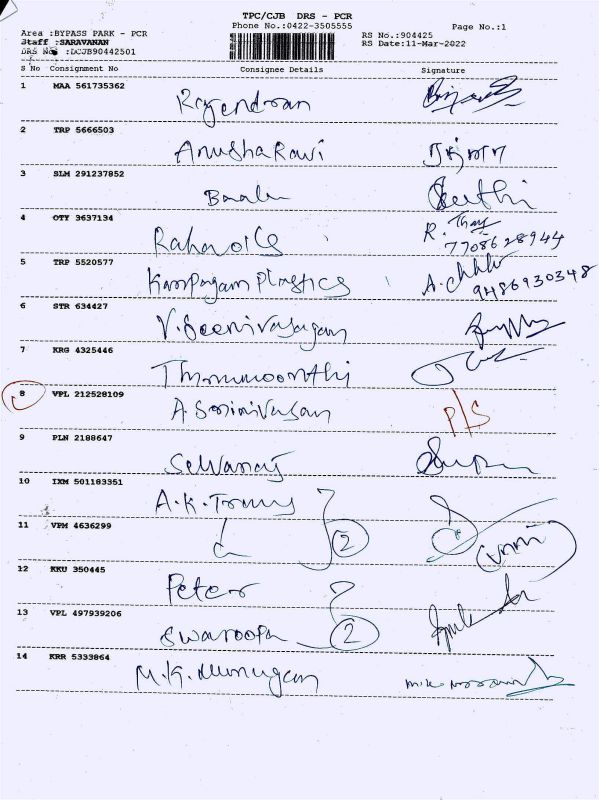 TPC/CJB DRS - PCR
Phone No.:0422-3505555 Page No.:1
Area :BYPASS PARK - PCR RS No.:904425
Staff :SARAVANAN RS Date:11-Mar-2022
DRS No :DCJB90442501
S No Consignment No Consignee Details Signature
1 MAA 561735362 Rajendran
2 TRP 5666503 AnushaRavi
3 SLM 291237852 Baalu
4 OTY 3637134 R. 7708628944
5 TRP 5520577 Karpagam Plastics A. 9486930348
6 STR 634427 V.Seenivasagan
7 KRG 4325446
8 VPL 212528109 A.Srinivasan P/S
9 PLN 2188647 Selvaraj
10 IXM 501183351 A.K.
11 VPM 4636299 2
12 KKU 350445 Peter
13 VPL 497939206 Swaroopa 2
14 KRR 5333864 M.K.Murugan